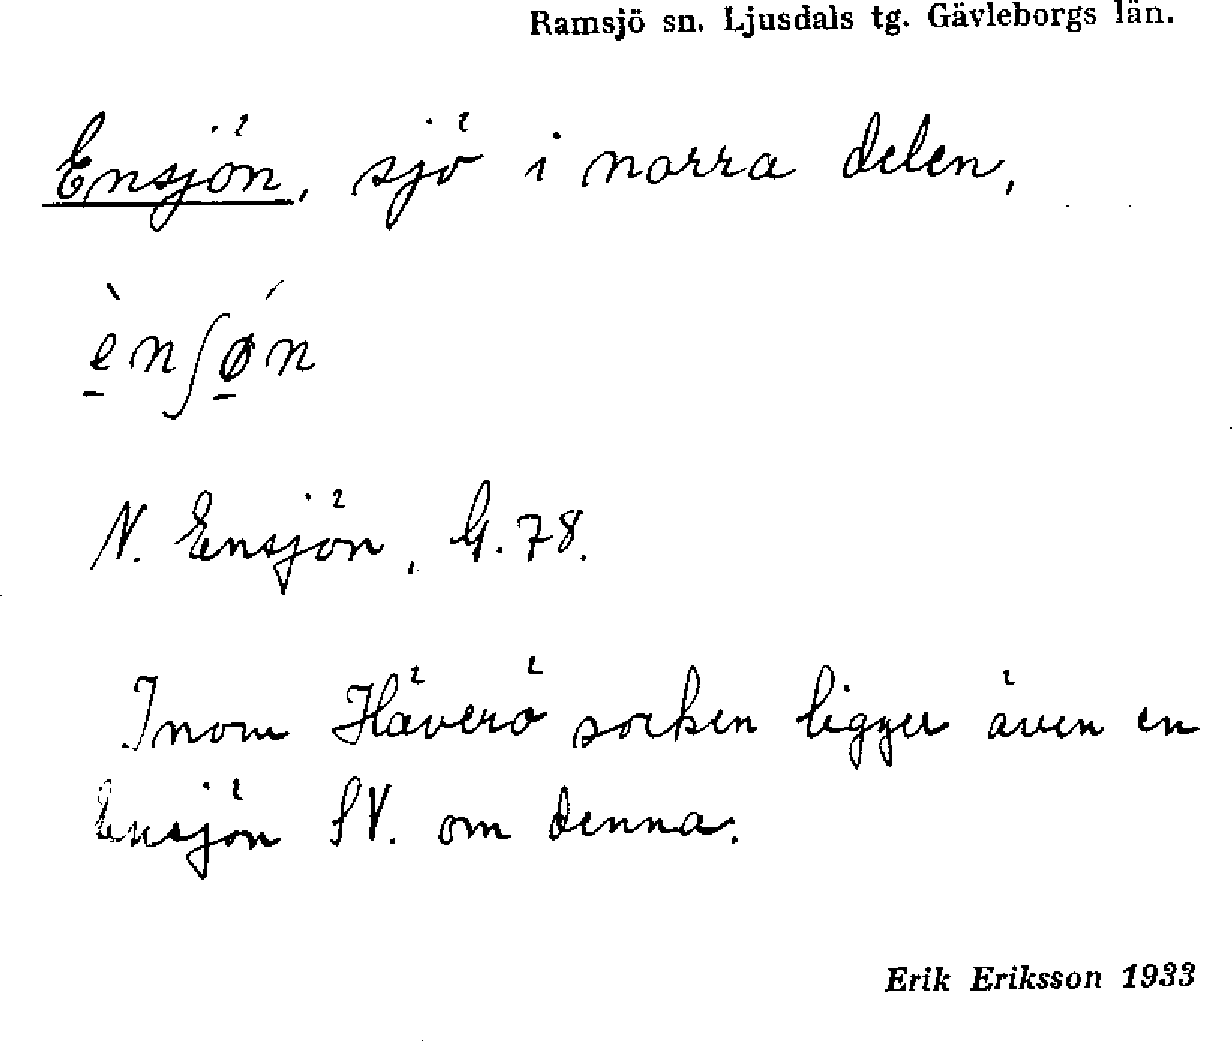 Ramsjö sn. Ljusdals tg. Gävleborgs län.
Ensjön, sjö i norra delen,
ènʃǿn
N. Ensjön, G. 78.
Inom Häverö socken ligger även en
Ensjön SV. om denna.
Erik Eriksson 1933